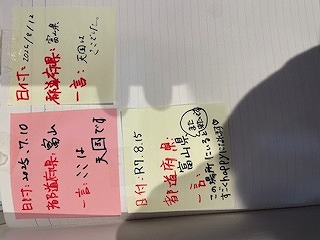 日付: 2025/8/12
都道府県: 富山県
一言: 天国は
ここでした。
日付: 2025.7.10
都道府県: 富山
一言: ここは
天国です
日付: R7.8.15
都道府県:
富山県
一言
この場所にいると
すごくhappyになれる♡